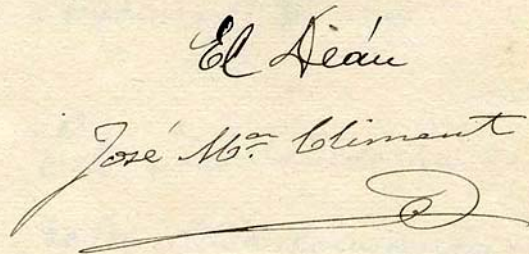 El Deán
José Mª Climent